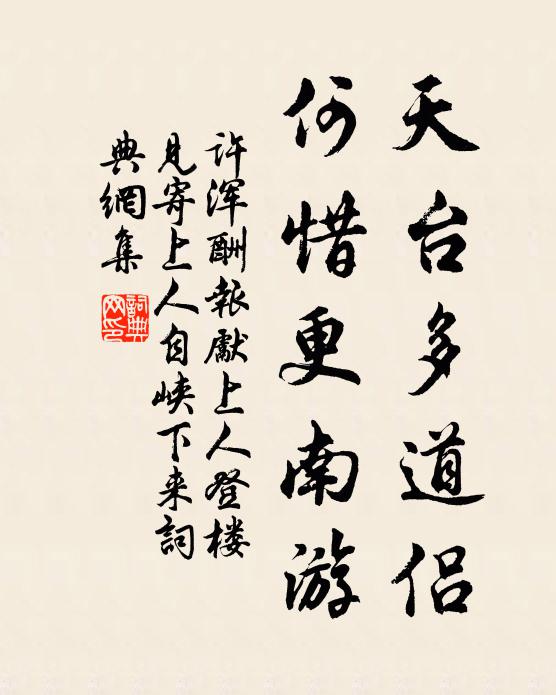 天台多道侣
何惜更南游
许浑酬報獻上人登楼
見寄上人自峡下来詞
典網集
詞典网印